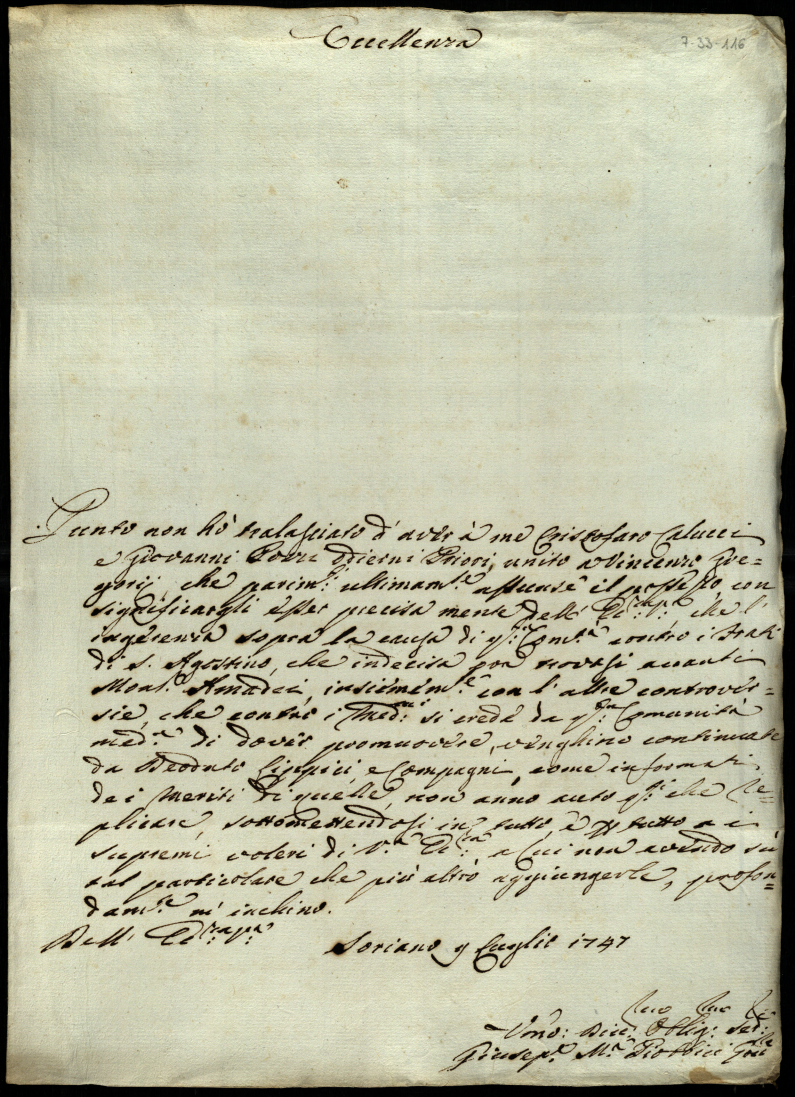 Eccellenza
7-33-116
Punto non hò tralasciato d'aver à me Cristofaro Calucci
e Giovanni Odierni Priori, unito a Vincenzo Gre=
gorij che parim.ti ultimam.te assunse il possesso, con
significargli esser precisa mente dell' Ecc.za che l'
ingerenza sopra la causa di q.sta Com.tà contro i Frati
di S. Agostino, che indecisa per trovasi avanti
Mons. Amadei, insiemem.te con l'altre controver=
sie, che contro i Med.mi si crede da q.sta Comunità
med.a di dover promuovere, venghino continuate
da Deodato e Compagni, come informati
dei meriti di quelle, non anno auto q.ti che re=
plicare, sottomettendosi in tutto e p tutto a i
supremi voleri di V.ra Ecc.za a cui non avendo sù
tal particolare che più altro aggiungerle, profon=
dam.te m'inchino.
Dell' Ecc.za
Soriano 9 Luglio 1747
Umo: Dev: Oblig: Ser:
Giusep.e M.a